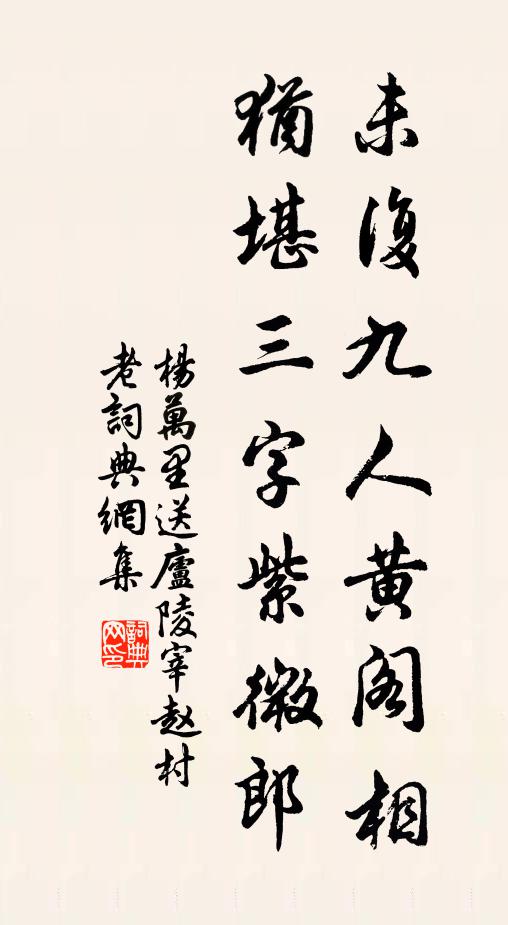 未復九人黄阁相
猶堪三字紫微郎
楊萬里送廬陵宰赵材
老詞典網集
詞典网印